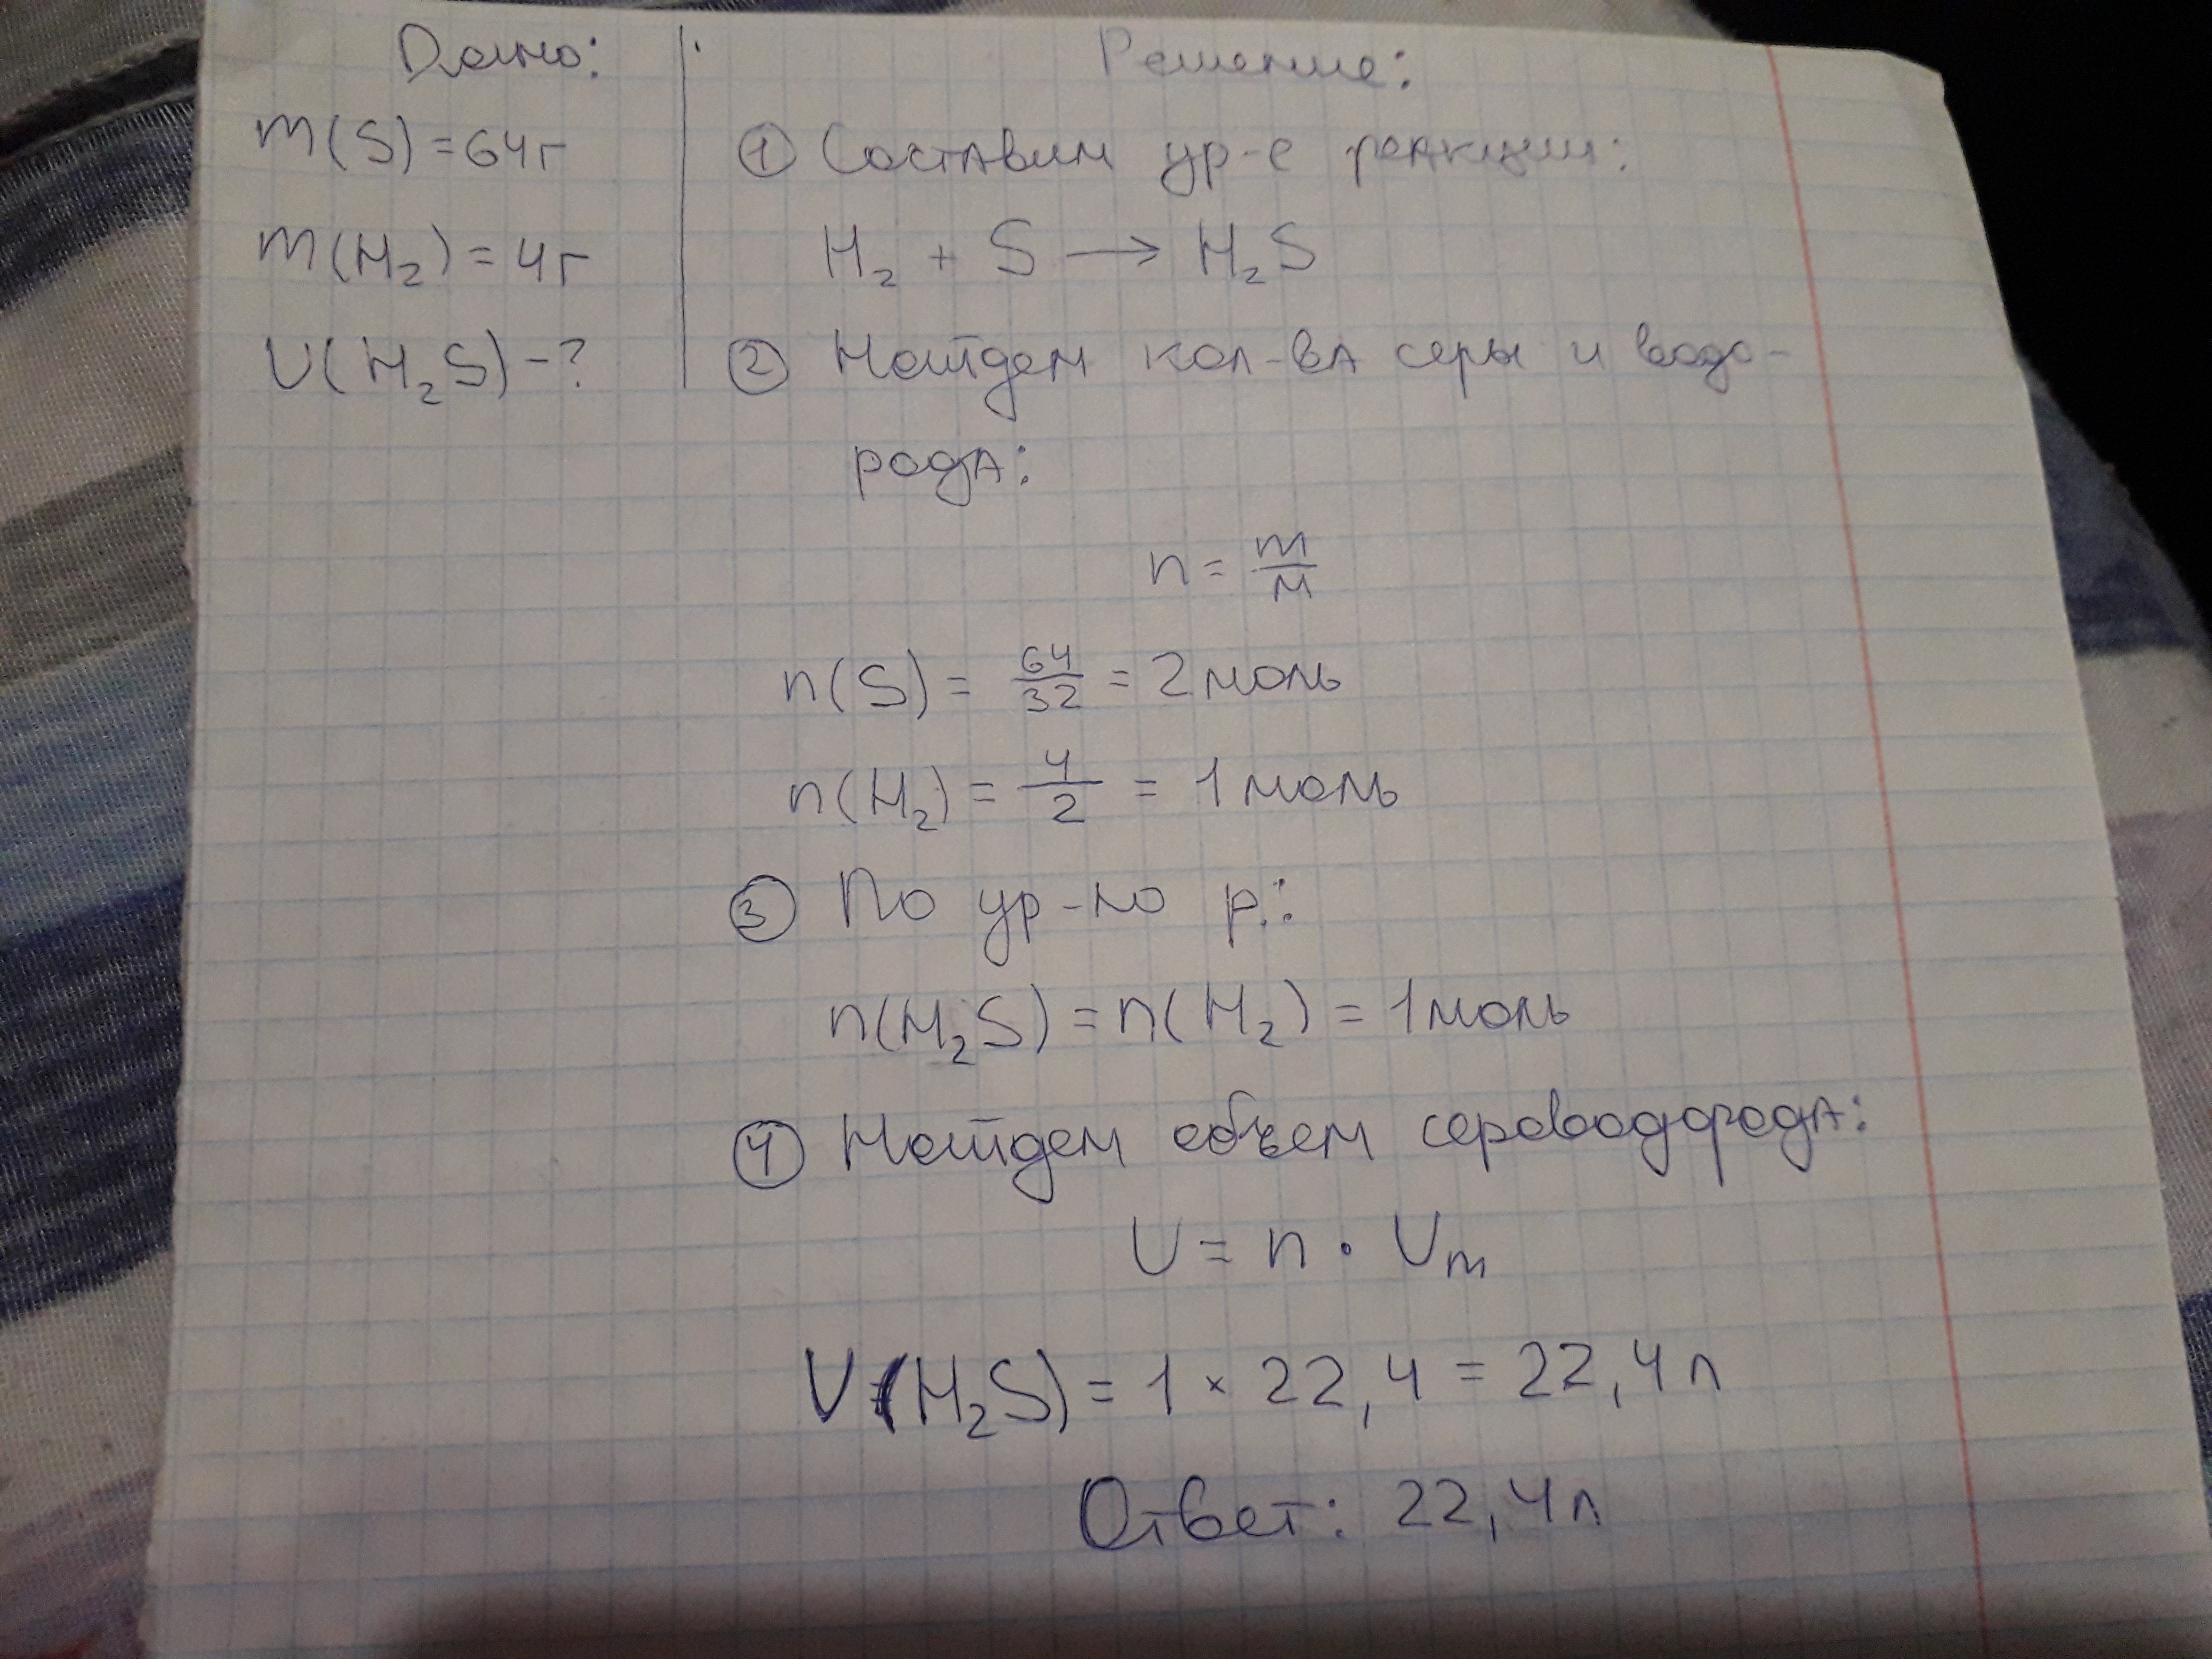 Дано:
m(S)=64г
m(H₂)=4г
V(H₂S)-?
Решение:
① Составим ур-е реакции:
H₂ + S → H₂S
② Найдем кол-вА серы и водо-
родА:
n = m/M
n(S) = 64/32 = 2 моль
n(H₂) = 4/2 = 1 моль
③ По ур-ю р.:
n(H₂S) = n(H₂) = 1 моль
④ Найдем объем сероводородА:
V = n · Vm
V(H₂S) = 1 × 22,4 = 22,4 л
Ответ: 22,4л